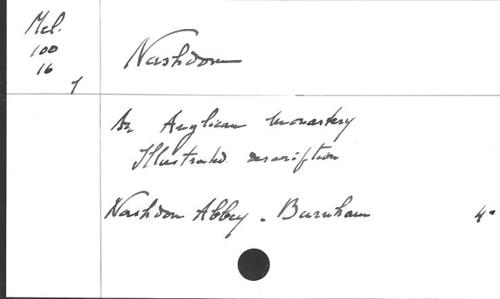 Mel.
100
16
1
Nashdom
An Anglican monastery
Illustrated description
Nashdom Abbey. Burnham 4°